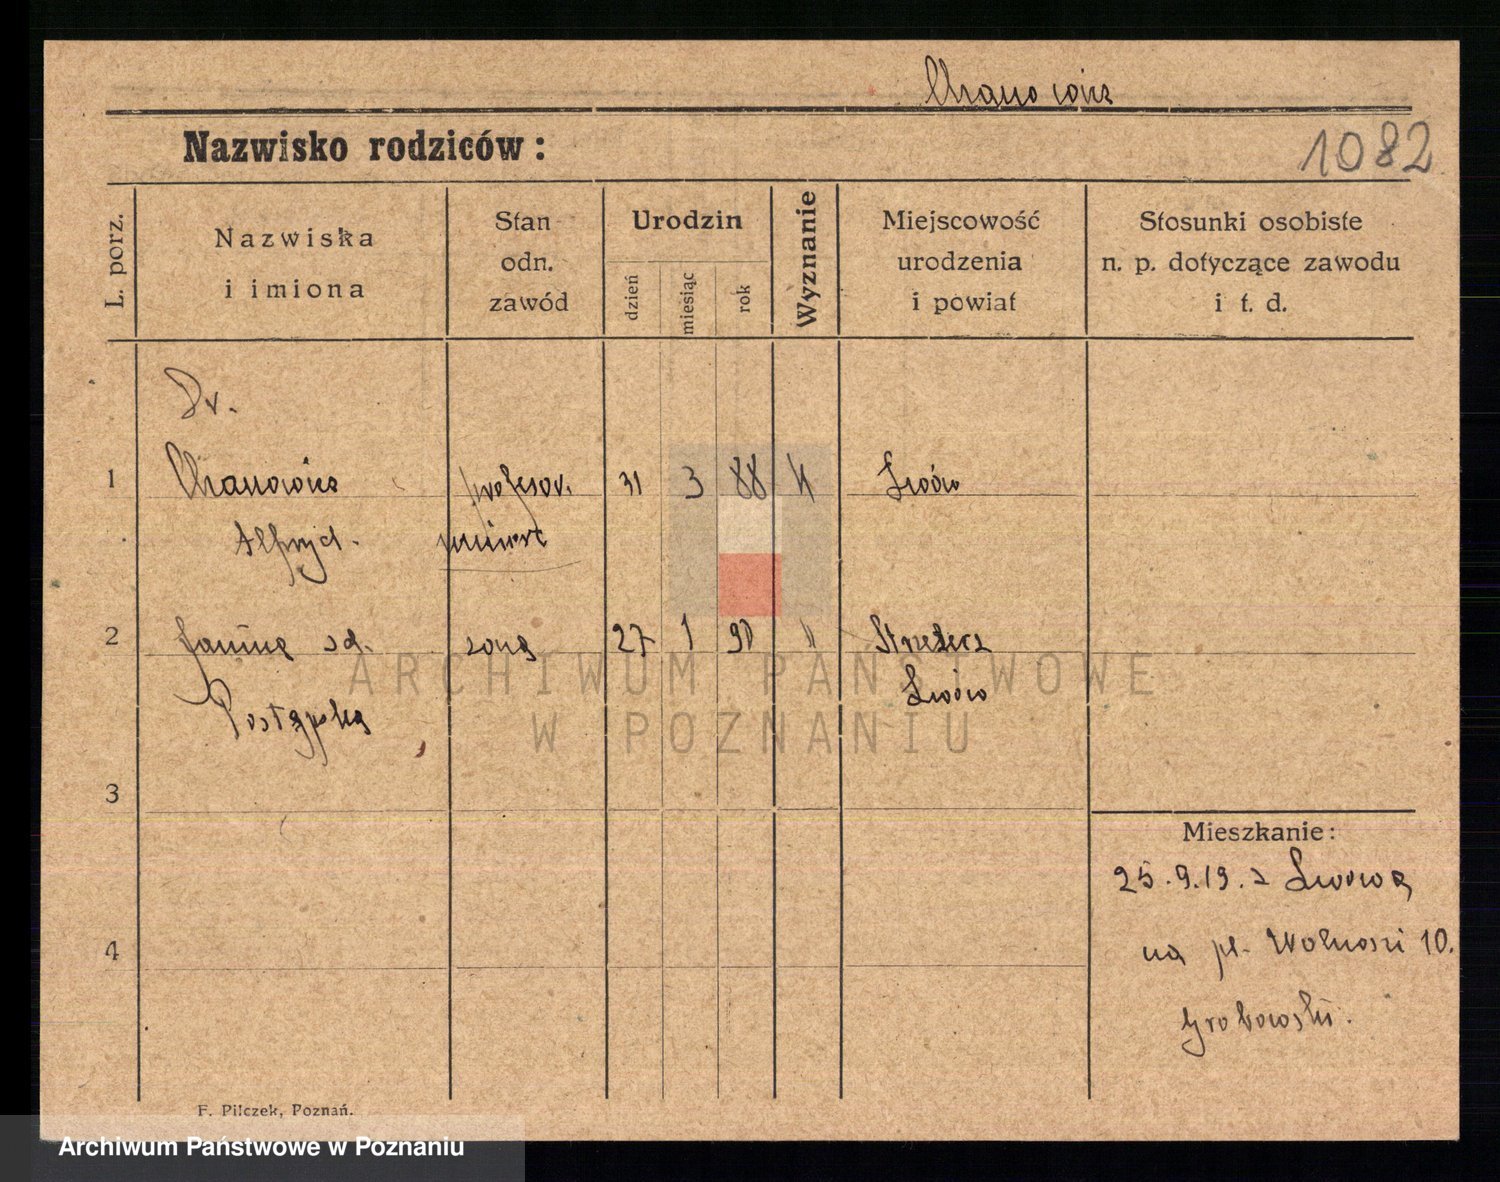 Ohanowicz
Nazwisko rodziców:
1082
L. porz.
Nazwiska
i imiona
Stan
odn.
zawód
Urodzin
dzień
miesiąc
rok
Wyznanie
Miejscowość
urodzenia
i powiat
Stosunki osobiste
n. p. dotyczące zawodu
i t. d.
Dr.
1 Ohanowicz profesor. 31 3 88 Lwów
Alfryd. uniwert
2 Janina zd. żona 27 1 90 "
Lwów
ARCHIWUM PAŃSTWOWE
W POZNANIU
3
Mieszkanie:
25.9.19. z Lwowa
4
na pl. Wolności 10.
Grabowski.
F. Pilczek, Poznań.
Archiwum Państwowe w Poznaniu